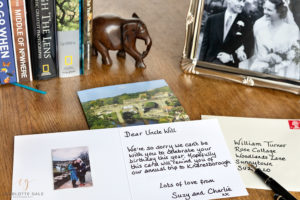 WHEN
MIDDLE OF NOWHERE
THROUGH THE LENS
NATIONAL GEOGRAPHIC
Dear Uncle Will,
We're so sorry we can't be
with you to celebrate your
birthday this year. Hopefully
this card will remind you of
our annual trip to
Lots of love from
Suzy and Charlie
xx
William Turner
Rose Cottage
Woodlands Lane
Sunnytown